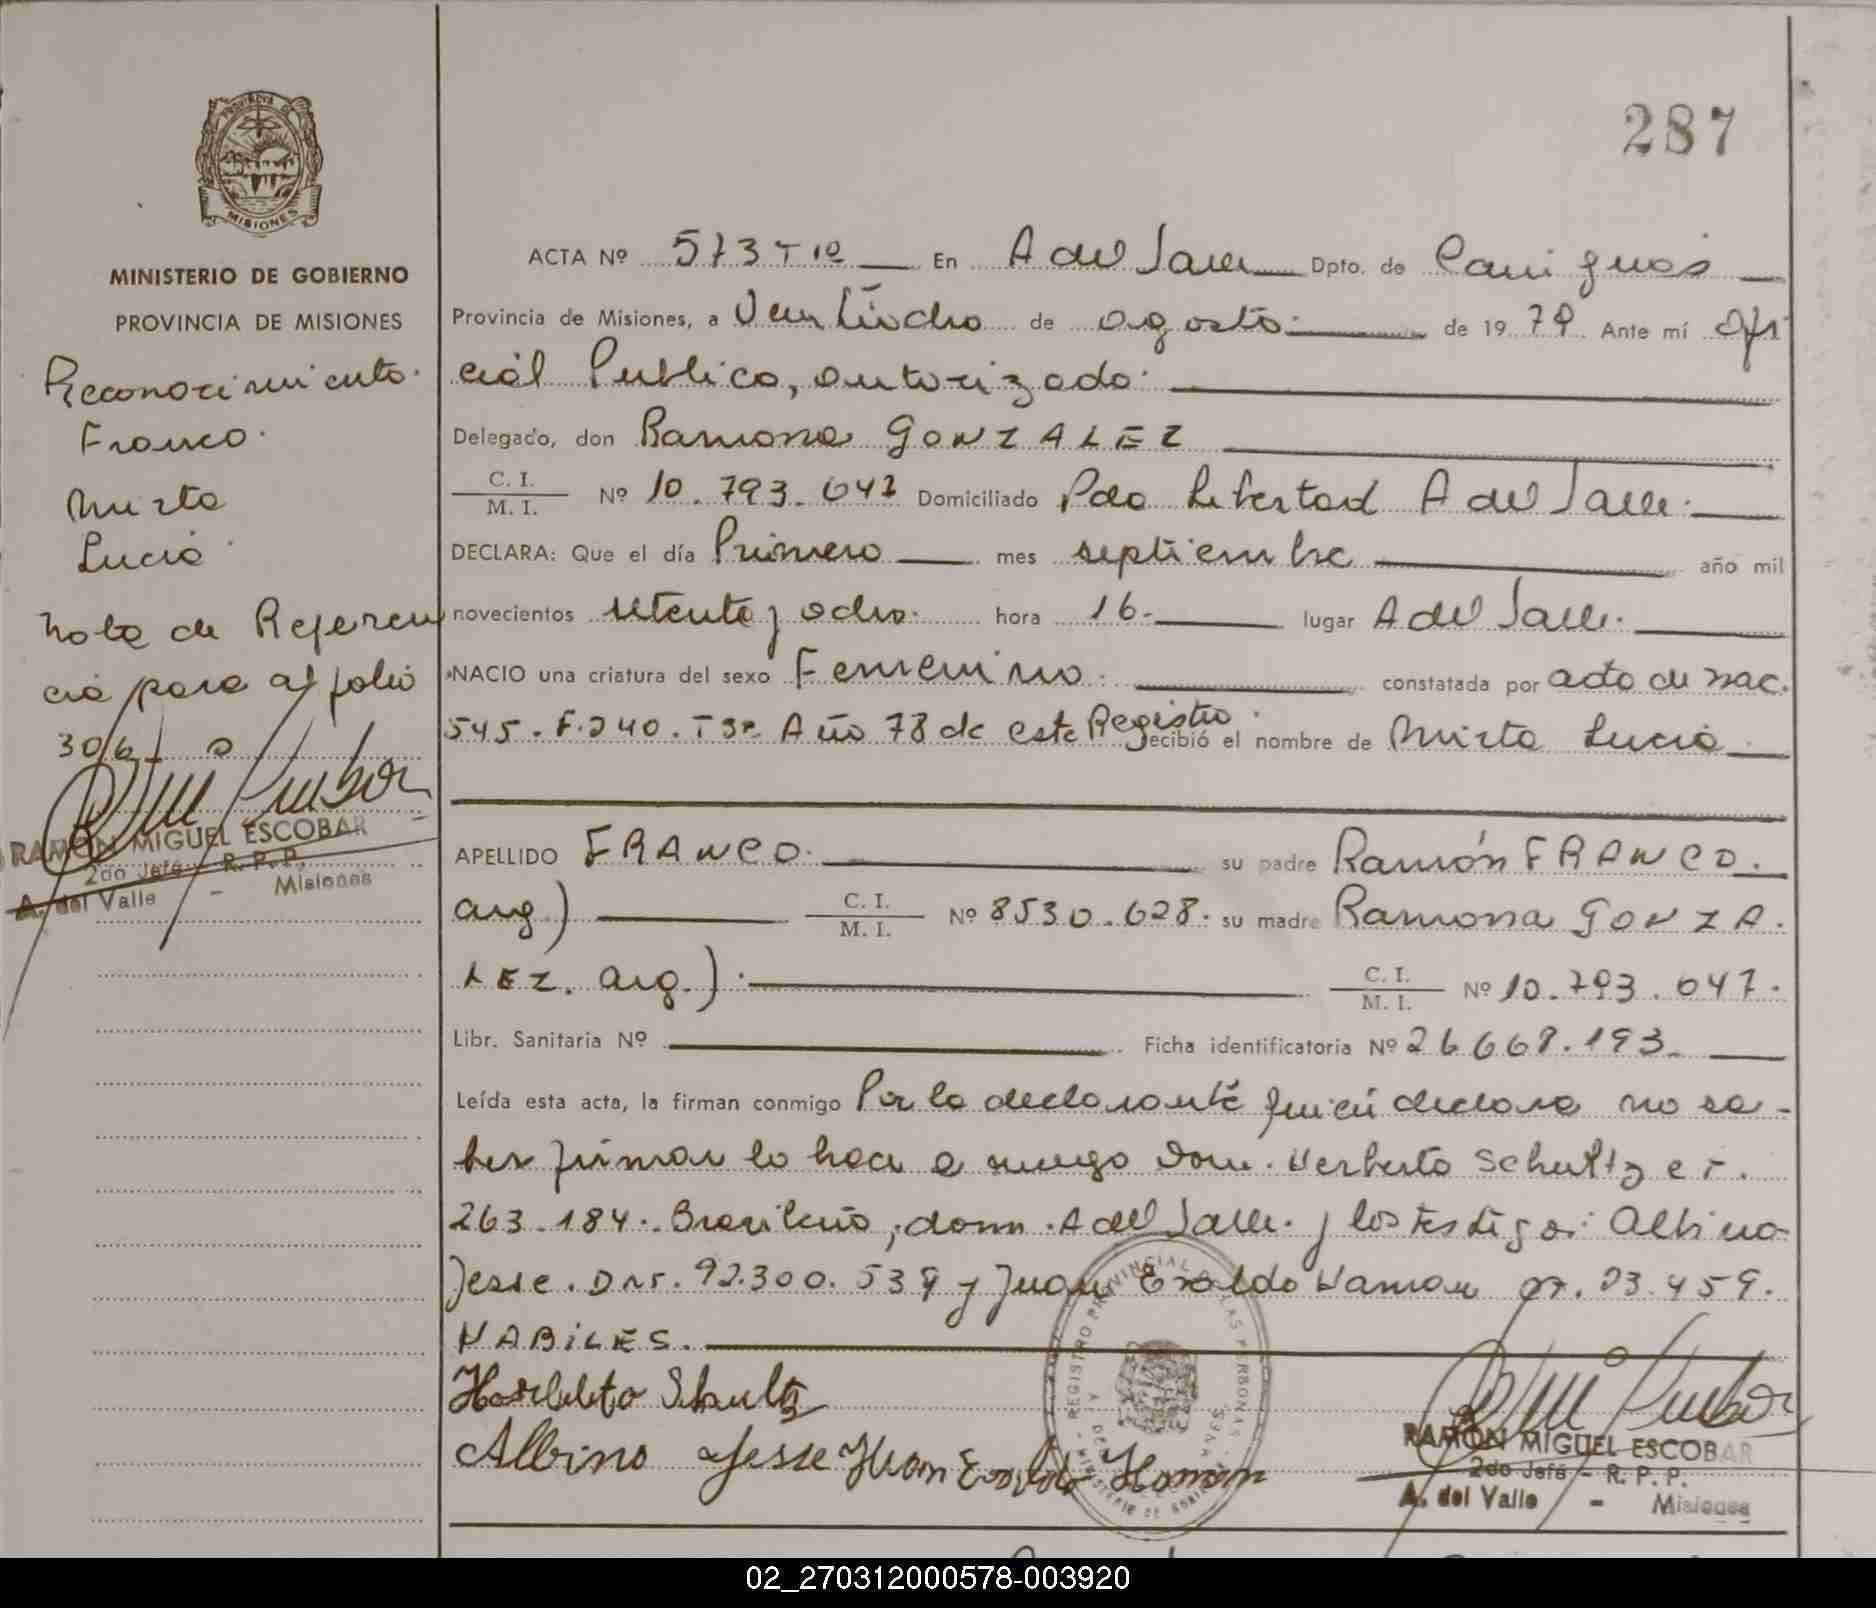 287
MISIONES
MINISTERIO DE GOBIERNO
PROVINCIA DE MISIONES
Reconocimiento.
Franco.
Mirta
Lucia
Nota de Referen
cia para al folio
306
RAMON MIGUEL ESCOBAR
2do Jefe - R. P. P.
A. del Valle - Misiones
ACTA Nº 573 T 1º En A del Valle Dpto. de Cainguás
Provincia de Misiones, a Veintiocho de agosto de 1979 Ante mí Ofi
cial Publico, autorizado.
Delegado, don Ramona GONZALEZ
C. I. / M. I. Nº 10.793.647 Domiciliado Pdo Libertad A del Valle.
DECLARA: Que el día Primero mes septiembre año mil
novecientos setenta y ocho. hora 16.- lugar A del Valle.
NACIO una criatura del sexo Femenino. constatada por acta de nac.
545. F.240. T 3º Año 78 de este Registro. recibió el nombre de Mirta Lucia
APELLIDO FRANCO. su padre Ramón FRANCO.
arg.) C. I. / M. I. Nº 8530.628. su madre Ramona GONZA.
LEZ. arg.). C. I. / M. I. Nº 10.793.647.
Libr. Sanitaria Nº Ficha identificatoria Nº 26.668.193.
Leída esta acta, la firman conmigo Por la declarante quien declara no sa-
ber firmar lo hace a ruego Dom. Herberto Schultz C I.
263.184. Brasileño, dom. A del Valle. y los testigos: Albino
Jesse. DNI. 92.300.539 y Juan Evaldo Haman 23.459.
HABILES.
Herberto Schultz
Albino Jesse Juan Evaldo Haman
REGISTRO PROVINCIAL DE LAS PERSONAS
RAMON MIGUEL ESCOBAR
2do Jefe - R. P. P.
A. del Valle - Misiones
02_270312000578-003920